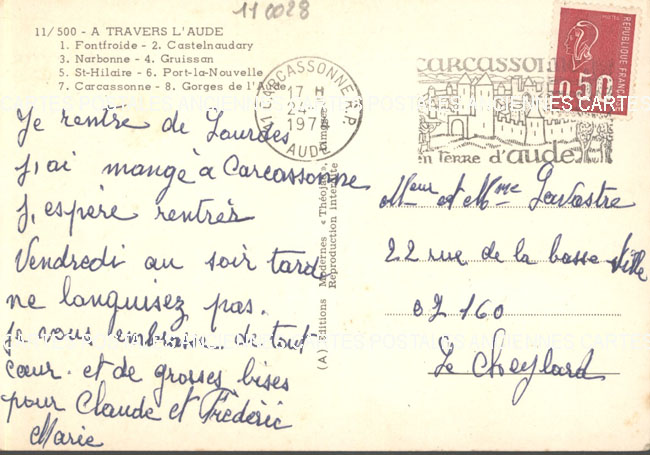 11 0028
11/500 - A TRAVERS L'AUDE
1. Fontfroide - 2. Castelnaudary
3. Narbonne - 4. Gruissan
5. St-Hilaire - 6. Port-la-Nouvelle
7. Carcassonne - 8. Gorges de l'Aude
CARCASSONNE R.P.
17 H
197
AUDE
carcassonne
en terre d'aude
REPUBLIQUE FRANÇAISE
0,50
Je rentre de Lourdes
J,ai mangé à Carcassonne
J,espère rentrer
Vendredi au soir tard
ne languisez pas.
Je vous embrasse de tout
cœur. et de grosses bises
pour Claude et Frédéric
Marie
(A) Editions Modernes « Théojac »,
Reproduction interdite
Meur et Mme Lavastre
22 rue de la basse ville
07160
Le Cheylard
CARTES POSTALES ANCIENNES CARTES POSTALES ANCIENNES CARTES
CARTES POSTALES ANCIENNES CARTES POSTALES ANCIENNES